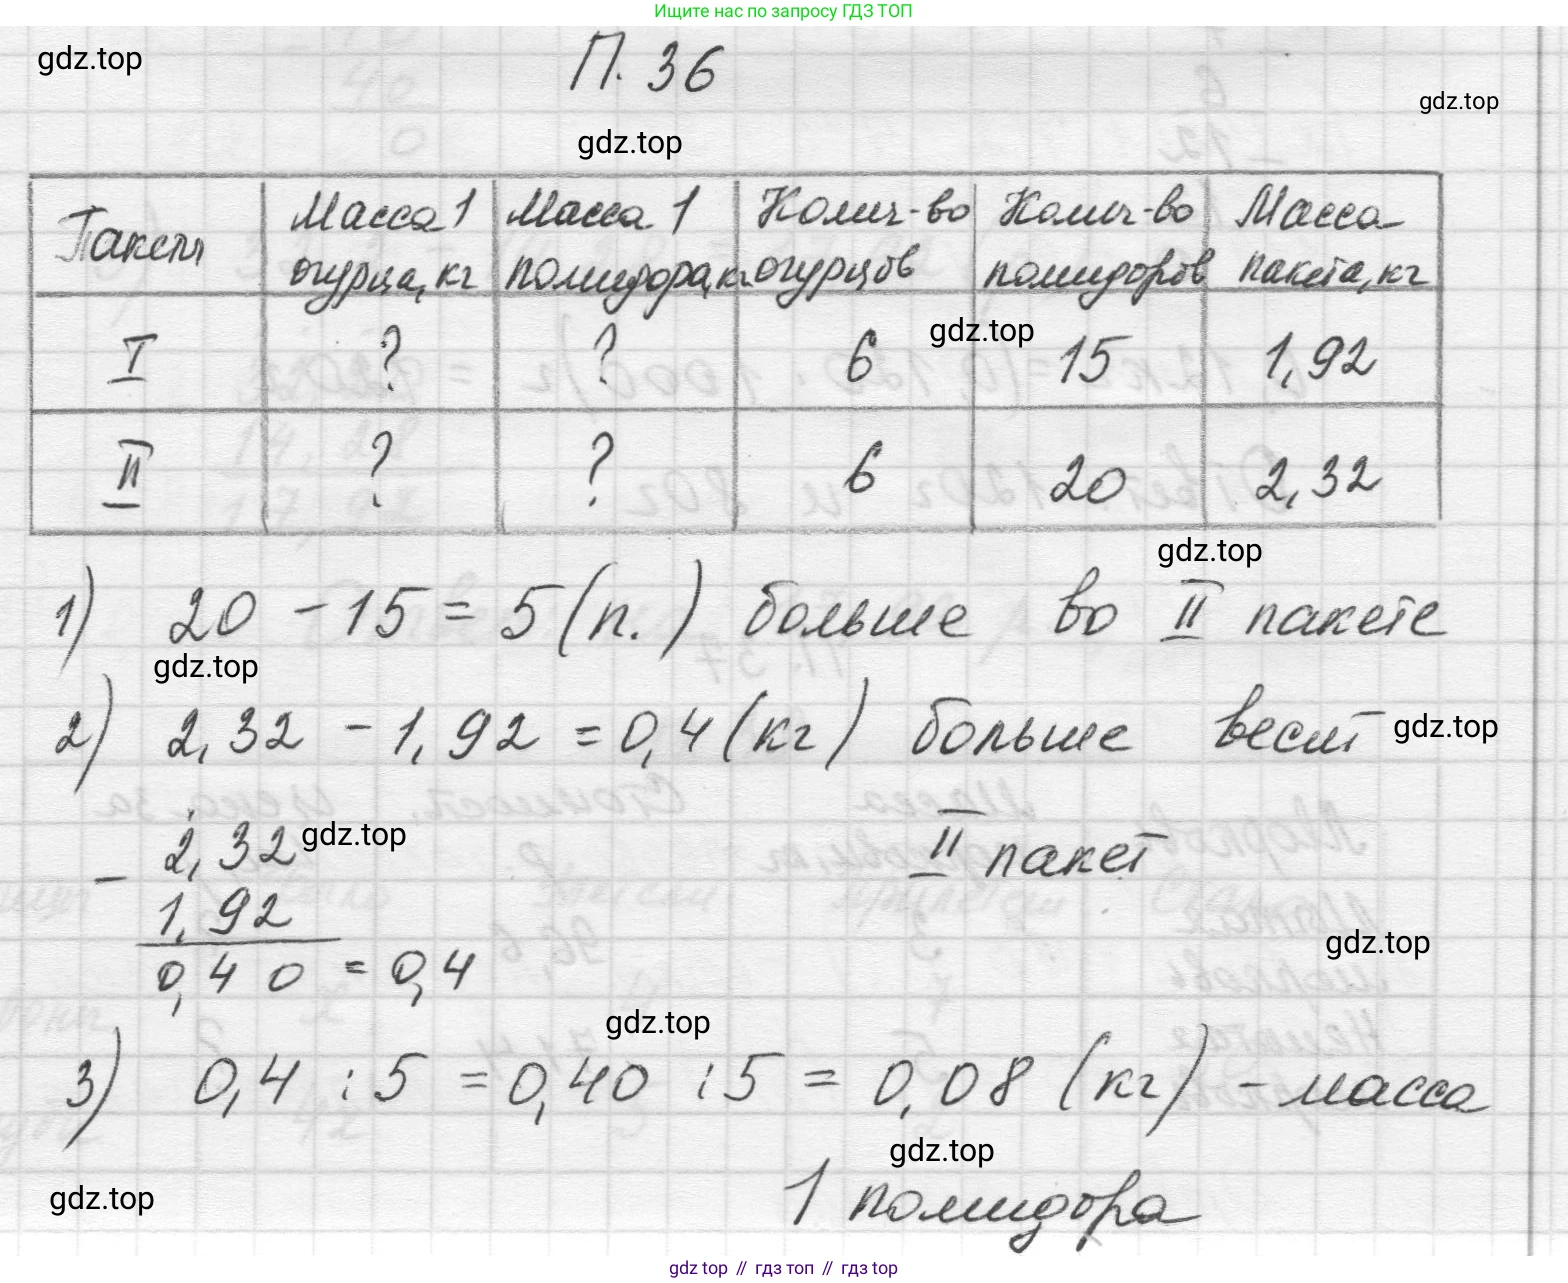 Ищите нас по запросу ГДЗ ТОП
gdz.top
П. 36
gdz.top
gdz.top
Пакет Масса 1 огурца, кг Масса 1 помидора, кг Колич-во огурцов Колич-во помидоров Масса пакета, кг
gdz.top
I ? ? 6 15 1,92
II ? ? 6 20 2,32
gdz.top
1) 20 - 15 = 5 (п.) больше во II пакете
gdz.top
2) 2,32 - 1,92 = 0,4 (кг) больше весит
gdz.top
II пакет
- 2,32
gdz.top
1,92
gdz.top
0,40 = 0,4
gdz.top
3) 0,4 : 5 = 0,40 : 5 = 0,08 (кг) - масса
gdz.top
1 помидора
gdz.top
gdz top // гдз топ // гдз top